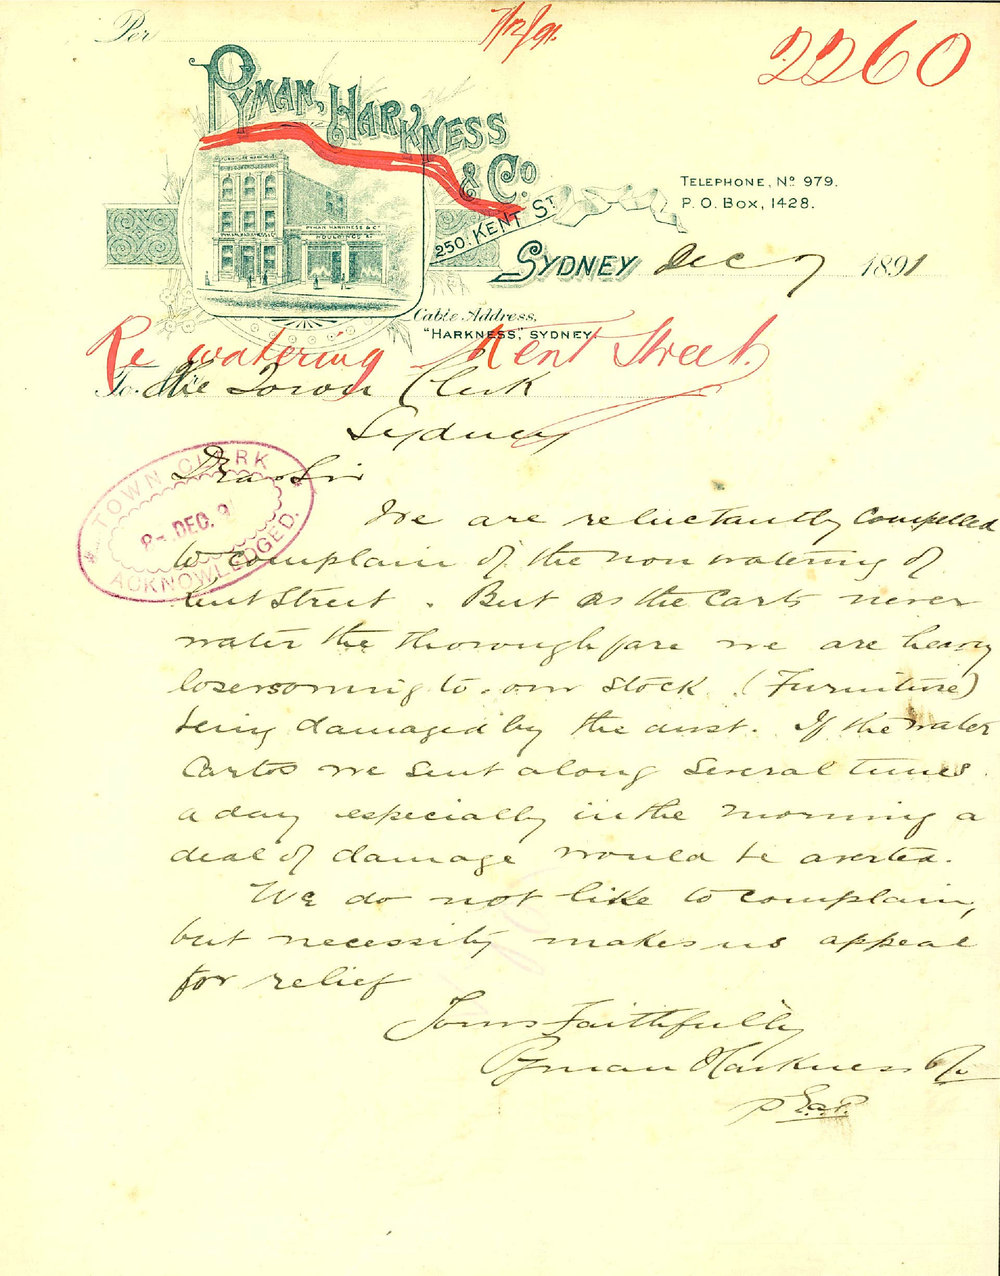 Per
7/12/91.
2260
PYMAN, HARKNESS
& Co.
FURNITURE
PYMAN HARKNESS & Co
MOULDINGS &c
250. KENT ST.
TELEPHONE, No 979.
P. O. BOX, 1428.
SYDNEY Dec 7 1891
Cable Address,
"HARKNESS," SYDNEY.
Re watering Kent Street.
To The Town Clerk
Sydney
Dear Sir
TOWN CLERK
8 - DEC. 9
ACKNOWLEDGED.
We are reluctantly compelled
to complain of the non watering of
Kent Street. But as the Carts never
water the thoroughfare we are heavy
losers owing to our stock (Furniture)
being damaged by the dust. If the water
Carts we sent along several times
a day especially in the morning a
deal of damage would be averted.
We do not like to complain,
but necessity makes us appeal
for relief
Yours Faithfully
Pyman Harkness & Co
p